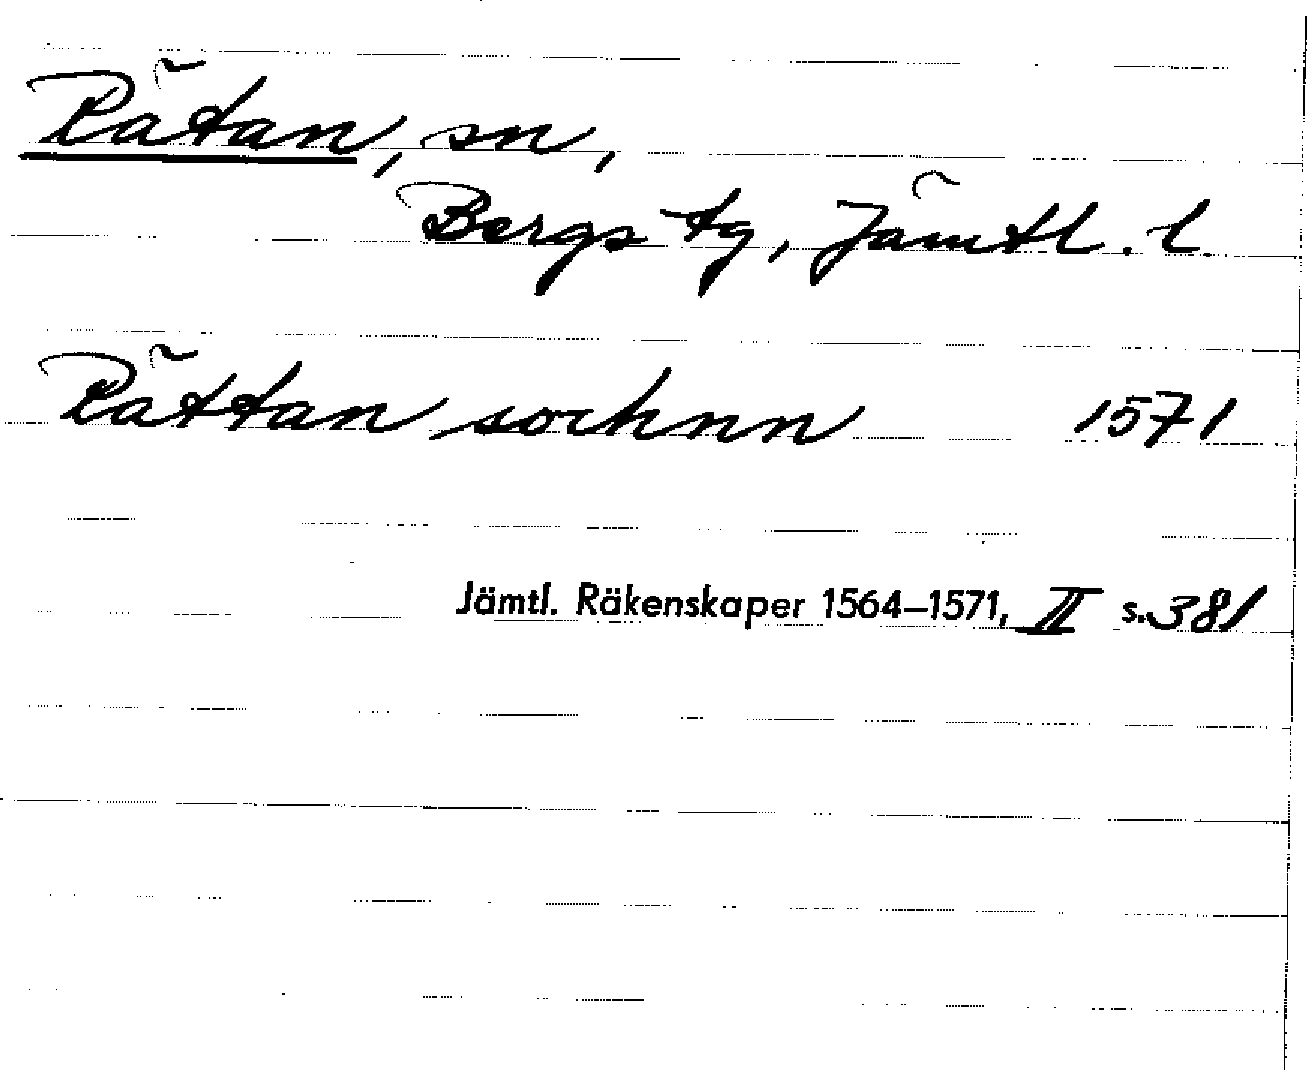 Rätan, sn,
Bergs tg, Jämtl. l.
Rättan sochnn 1571
Jämtl. Räkenskaper 1564–1571, II s. 381